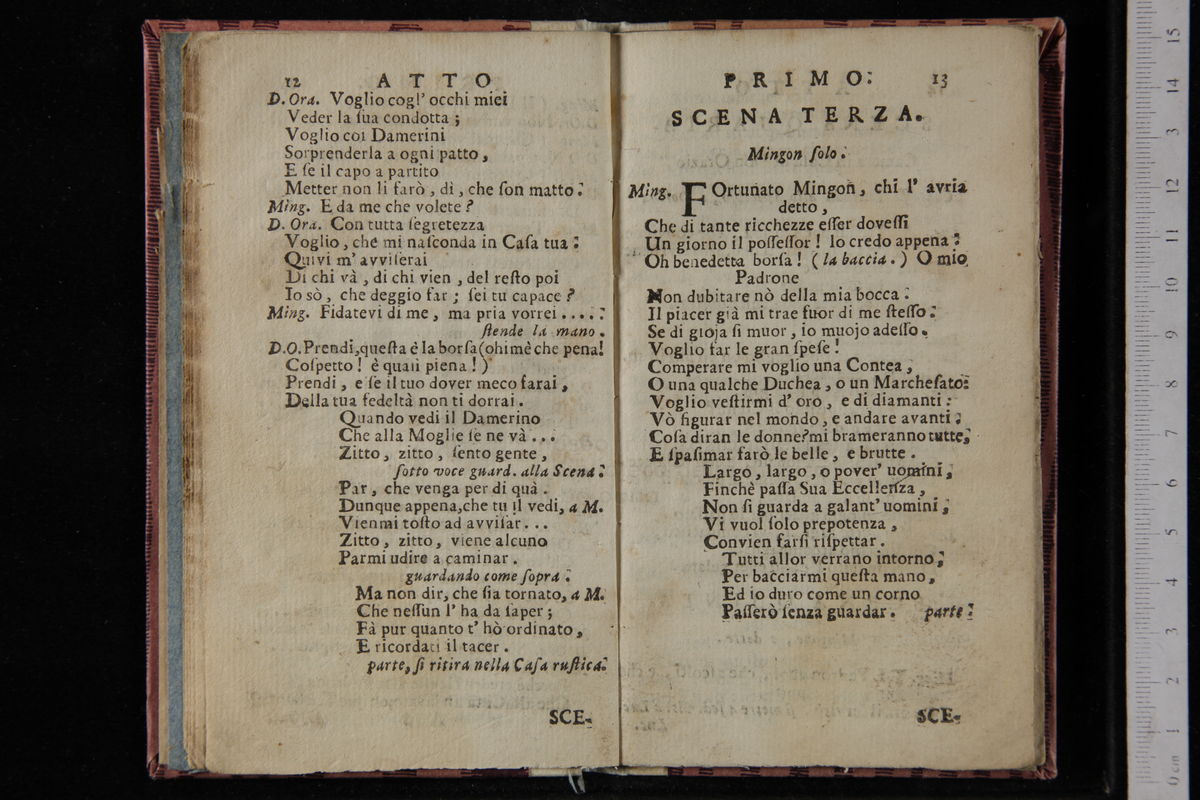 12 ATTO
D. Ora. Voglio cogl' occhi miei
Veder la ſua condotta ;
Voglio coi Damerini
Sorprenderla a ogni patto ,
E ſe il capo a partito
Metter non li farò , dì , che ſon matto .
Ming. E da me che volete ?
D. Ora. Con tutta ſegretezza
Voglio , che mi naſconda in Caſa tua :
Quivi m' avviſerai
Di chi và , di chi vien , del reſto poi
Io sò , che deggio far ; ſei tu capace ?
Ming. Fidatevi di me , ma pria vorrei . . . . .
ſtende la mano .
D.O. Prendi, queſta è la borſa (ohimè che pena!
Coſpetto ! è quaſi piena ! )
Prendi , e ſe il tuo dover meco farai ,
Della tua fedeltà non ti dorrai .
Quando vedi il Damerino
Che alla Moglie ſe ne và . . .
Zitto , zitto , ſento gente ,
ſotto voce guard. alla Scena .
Par , che venga per di quà .
Dunque appena, che tu il vedi, a M.
Vienmi toſto ad avviſar . . .
Zitto , zitto , viene alcuno
Parmi udire a caminar .
guardando come ſopra .
Ma non dir, che ſia tornato, a M.
Che neſſun l' ha da ſaper ;
Fà pur quanto t' hò ordinato ,
E ricordati il tacer .
parte, ſi ritira nella Caſa ruſtica.
SCE-
PRIMO. 13
SCENA TERZA.
Mingon ſolo .
Ming. FOrtunato Mingon , chi l' avria
detto ,
Che di tante ricchezze eſſer doveſſi
Un giorno il poſſeſſor ! lo credo appena .
Oh benedetta borſa ! ( la baccia . ) O mio
Padrone
Non dubitare nò della mia bocca .
Il piacer già mi trae fuor di me ſteſſo .
Se di gioja ſi muor , io muojo adeſſo .
Voglio far le gran ſpeſe !
Comperare mi voglio una Contea ,
O una qualche Duchea , o un Marcheſato:
Voglio veſtirmi d' oro , e di diamanti :
Vò figurar nel mondo , e andare avanti :
Coſa diran le donne? mi brameranno tutte,
E ſpaſimar farò le belle , e brutte .
Largo , largo , o pover' uomini ,
Finchè paſſa Sua Eccellenza ,
Non ſi guarda a galant' uomini ,
Vi vuol ſolo prepotenza ,
Convien farſi riſpettar .
Tutti allor verrano intorno ,
Per bacciarmi queſta mano ,
Ed io duro come un corno
Paſſerò ſenza guardar . parte .
SCE-
0 cm 1 2 3 4 5 6 7 8 9 10 11 12 13 14 15